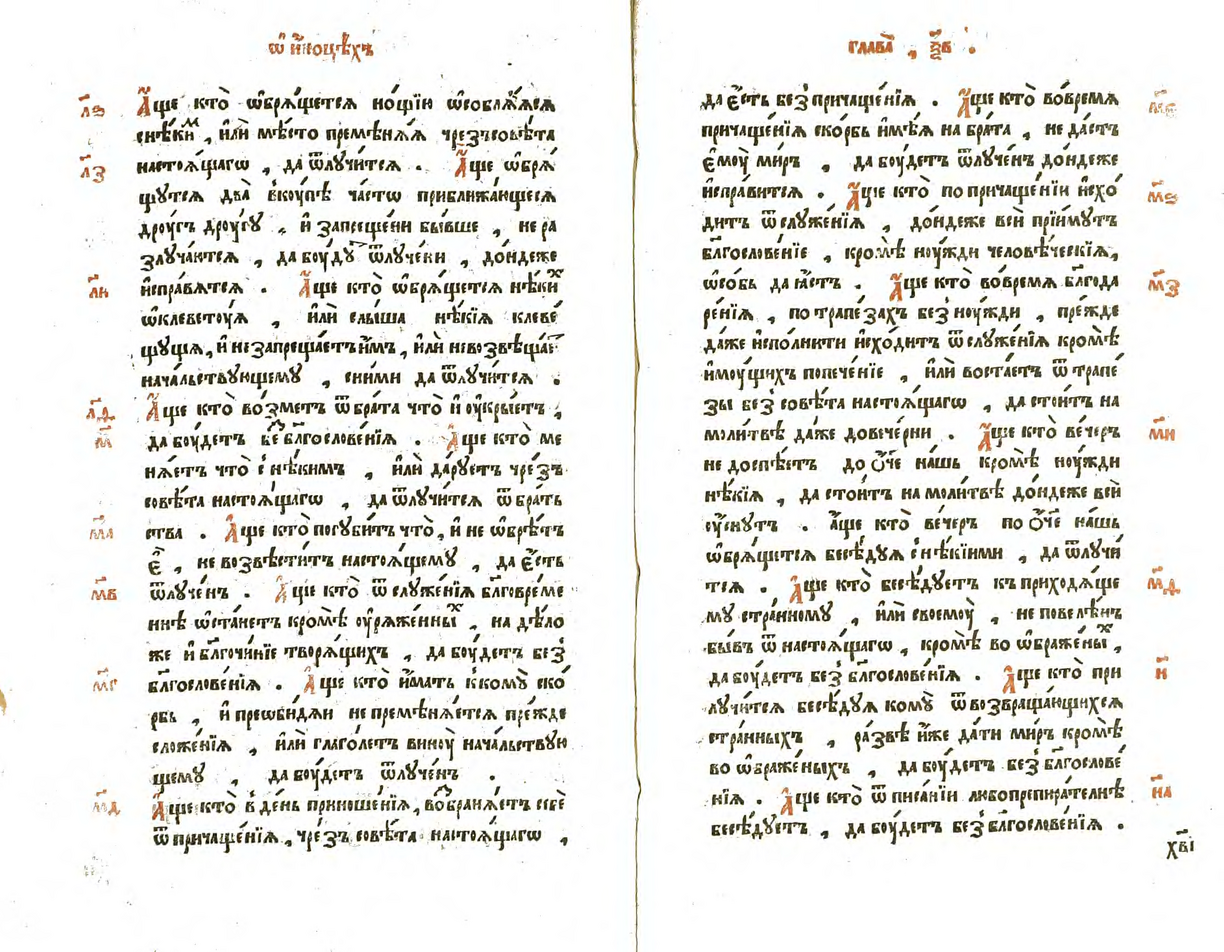 ѿ и҆́ноцѣхъ
л҃ѕ
А҆́ще кто̀ ѡ҆брѧ́щетсѧ но́щїи ѡ҆соблѧ́ѧсѧ
снѣ́ким , и҆лѝ мѣ́сто премѣнѧ́ѧ чрезъсовѣ́та
л҃з
настоѧ́щагѡ , да ѿлꙋчи́тсѧ . А҆́ще ѡ҆брѧ́
щꙋтсѧ два̀ вкꙋ́пѣ ча́стѡ приближа́ющесѧ
дрꙋ́гъ дрꙋ́гꙋ , и҆ запреще́ни бы́вше , не ра
злꙋча́ютсѧ , да бꙋ́дꙋт ѿлꙋче́ни , до́ндеже
л҃и
и҆спра́вѧтсѧ . А҆́ще кто̀ ѡ҆брѧ́щетсѧ нѣ́ких
ѡ҆клевета́ѧ , и҆лѝ слы́ша нѣ́кїѧ клеве́
щꙋщѧ , и҆ не запреща́етъ и҆̀мъ , и҆лѝ невозвѣща́ет
нача́льствꙋющемꙋ , сни́ми да ѿлꙋчи́тсѧ .
л҃ѳ
А҆́ще кто̀ во́зметъ ѿ бра́та что̀ и҆ оу҆кры́етъ ,
м҃
да бꙋ́детъ без̾ бл҃гослове́нїѧ . А҆́ще кто̀ ме
нѧ́етъ что̀ с нѣ́кимъ , и҆лѝ да́рꙋетъ чре́зъ
совѣ́та настоѧ́щагѡ , да ѿлꙋчи́тсѧ ѿ бра́тъ
м҃а
ства . А҆́ще кто̀ погꙋби́тъ что̀ , и҆ не ѡ҆брѣ́тъ
є҆̀ , не возвѣсти́тъ настоѧ́щемꙋ , да є҆́сть
м҃в
ѿлꙋче́нъ . А҆́ще кто̀ ѿ слꙋже́нїѧ бл҃говре́ме
ннѣ ѡ҆ста́нетъ кромѣ̀ оу҆рѧже́нных , на дѣ́ло
же и҆ бл҃гочи́нїе творѧ́щихъ , да бꙋ́детъ без̾
м҃г
бл҃гослове́нїѧ . А҆́ще кто̀ и҆́мать к комꙋ̀ ско́
рбь , и҆ преѡби́дѧи не премѣнѧ́етсѧ пре́жде
сложе́нїѧ , и҆лѝ глаго́летъ винꙋ̀ нача́льствꙋю
щемꙋ , да бꙋ́детъ ѿлꙋче́нъ .
м҃д
А҆́ще кто̀ в де́нь приноше́нїѧ , во́бранѧетъ себѐ
ѿ причаще́нїѧ , чре́зъ совѣ́та настоѧ́щагѡ ,
глава̀ , ѯ҃в .
да є҆́сть без̾ причаще́нїѧ . А҆́ще кто̀ во́времѧ
м҃є
причаще́нїѧ ско́рбь и҆мѣ́ѧ на бра́та , не да́стъ
є҆мꙋ̀ ми́ръ , да бꙋ́детъ ѿлꙋче́нъ до́ндеже
и҆спра́витсѧ . А҆́ще кто̀ по причаще́нїи и҆схо́
м҃ѕ
дитъ ѿ слꙋже́нїѧ , до́ндеже всѝ прїи́мꙋтъ
бл҃гослове́нїе , кромѣ̀ нꙋ́жди человѣ́ческїѧ ,
ѡ҆со́бь да ꙗ҆́стъ . А҆́ще кто̀ во́времѧ бл҃года
м҃з
ре́нїѧ , по трапе́захъ без̾ нꙋ́жди , пре́жде
да́же и҆спо́лнити и҆схо́дитъ ѿ слꙋже́нїѧ кромѣ̀
и҆мꙋ́щихъ попече́нїе , и҆лѝ воста́етъ ѿ трапе́
зы без̾ совѣ́та настоѧ́щагѡ , да стои́тъ на
моли́твѣ да́же довече́рни . А҆́ще кто̀ ве́черъ
м҃и
не доспѣ́етъ до ѻ҆́ч҃е на́шъ кромѣ̀ нꙋ́жди
нѣ́кїѧ , да стои́тъ на моли́твѣ до́ндеже всѝ
оу҆́снꙋтъ . а҆́ще кто̀ ве́черъ по ѻ҆́ч҃е на́шъ
ѡ҆брѧ́щетсѧ бесѣ́дꙋѧ с нѣ́кїими , да ѿлꙋчи́
тсѧ . А҆́ще кто̀ бесѣ́дꙋетъ къ приходѧ́ще
м҃ѳ
мꙋ стра́нномꙋ , и҆лѝ своемꙋ̀ , не повелѣ́нъ
бы́въ ѿ настоѧ́щагѡ , кромѣ̀ во ѡ҆браже́ных ,
да бꙋ́детъ без̾ бл҃гослове́нїѧ . А҆́ще кто̀ при
н҃
лꙋчи́тсѧ бесѣ́дꙋѧ комꙋ̀ ѿ возвраща́ющихсѧ
стра́нныхъ , ра́звѣ и҆́же да́ти ми́ръ кромѣ̀
во ѡ҆браже́ныхъ , да бꙋ́детъ без̾ бл҃гослове́
нїѧ . А҆́ще кто̀ ѿ писа́нїи любопрепира́телнѣ
н҃а
бесѣ́дꙋетъ , да бꙋ́детъ без̾ бл҃гослове́нїѧ .
х҃ві